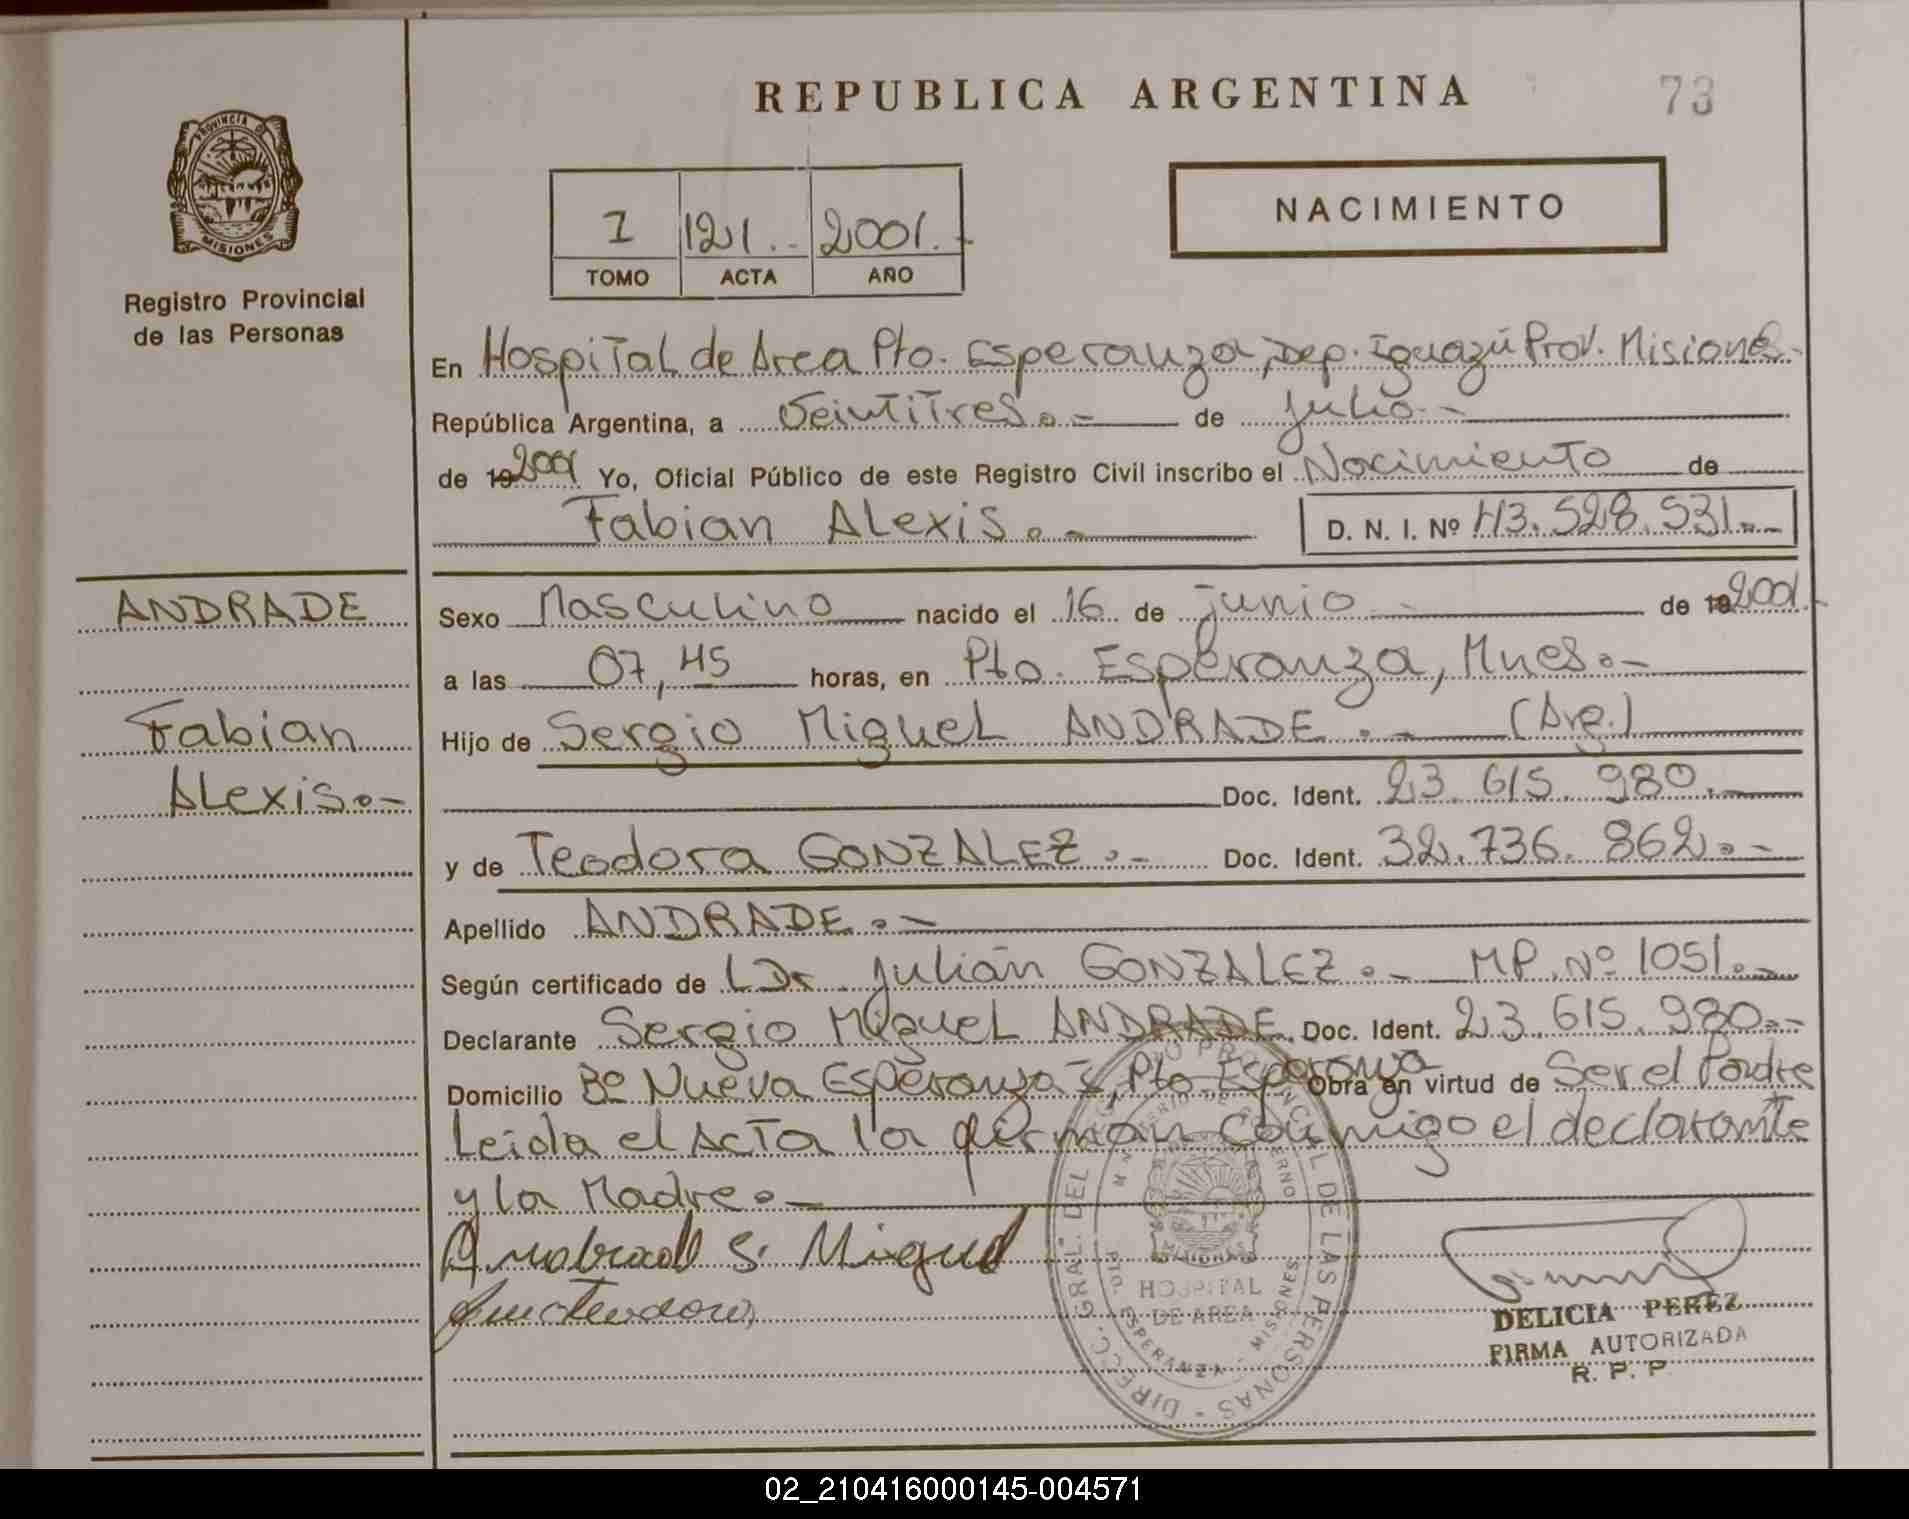 REPUBLICA ARGENTINA
73
PROVINCIA DE
MISIONES
Registro Provincial
de las Personas
1 121.- 2001.-
TOMO ACTA AÑO
NACIMIENTO
En Hospital de Area Pto. Esperanza, Dep. Iguazú Prov. Misiones.-
República Argentina, a Veintitres.- de julio.-
de 19 2001 Yo, Oficial Público de este Registro Civil inscribo el Nacimiento de
Fabian Alexis.- D. N. I. Nº 43.528.531.-
ANDRADE
Fabian
Alexis.-
Sexo Masculino nacido el 16 de junio.- de 19 2001.-
a las 07,45 horas, en Pto. Esperanza, Mnes.-
Hijo de Sergio Miguel ANDRADE.- (Arg.)
Doc. Ident. 23.615.980.-
y de Teodora GONZALEZ.- Doc. Ident. 32.736.862.-
Apellido ANDRADE.-
Según certificado de Dr. Julián GONZALEZ.- MP. Nº 1051.-
Declarante Sergio Miguel ANDRADE Doc. Ident. 23.615.980.-
Domicilio Bº Nueva Esperanza I, Pto. Esperanza Obra en virtud de Ser el Padre
Leida el Acta la firman conmigo el declarante
y la Madre.-
Andrade S. Miguel
DIRECC. GRAL. DEL REGISTRO PROVINCIAL DE LAS PERSONAS
MINISTERIO DE GOBIERNO
HOSPITAL
DE AREA
PTO. ESPERANZA - MISIONES
DELICIA PEREZ
FIRMA AUTORIZADA
R. P. P.
02_210416000145-004571